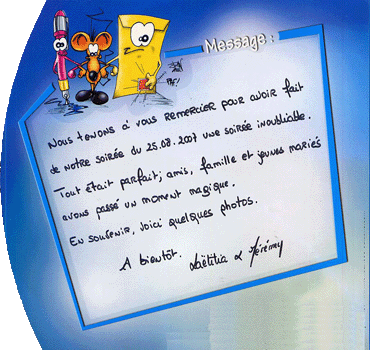 Message :
Nous tenons à vous remercier pour avoir fait
de notre soirée du 25.08.2007 une soirée inoubliable.
Tout était parfait; amis, famille et jeunes mariés
avons passé un moment magique.
En souvenir, voici quelques photos.
A bientôt. Laëtitia & Jérémy